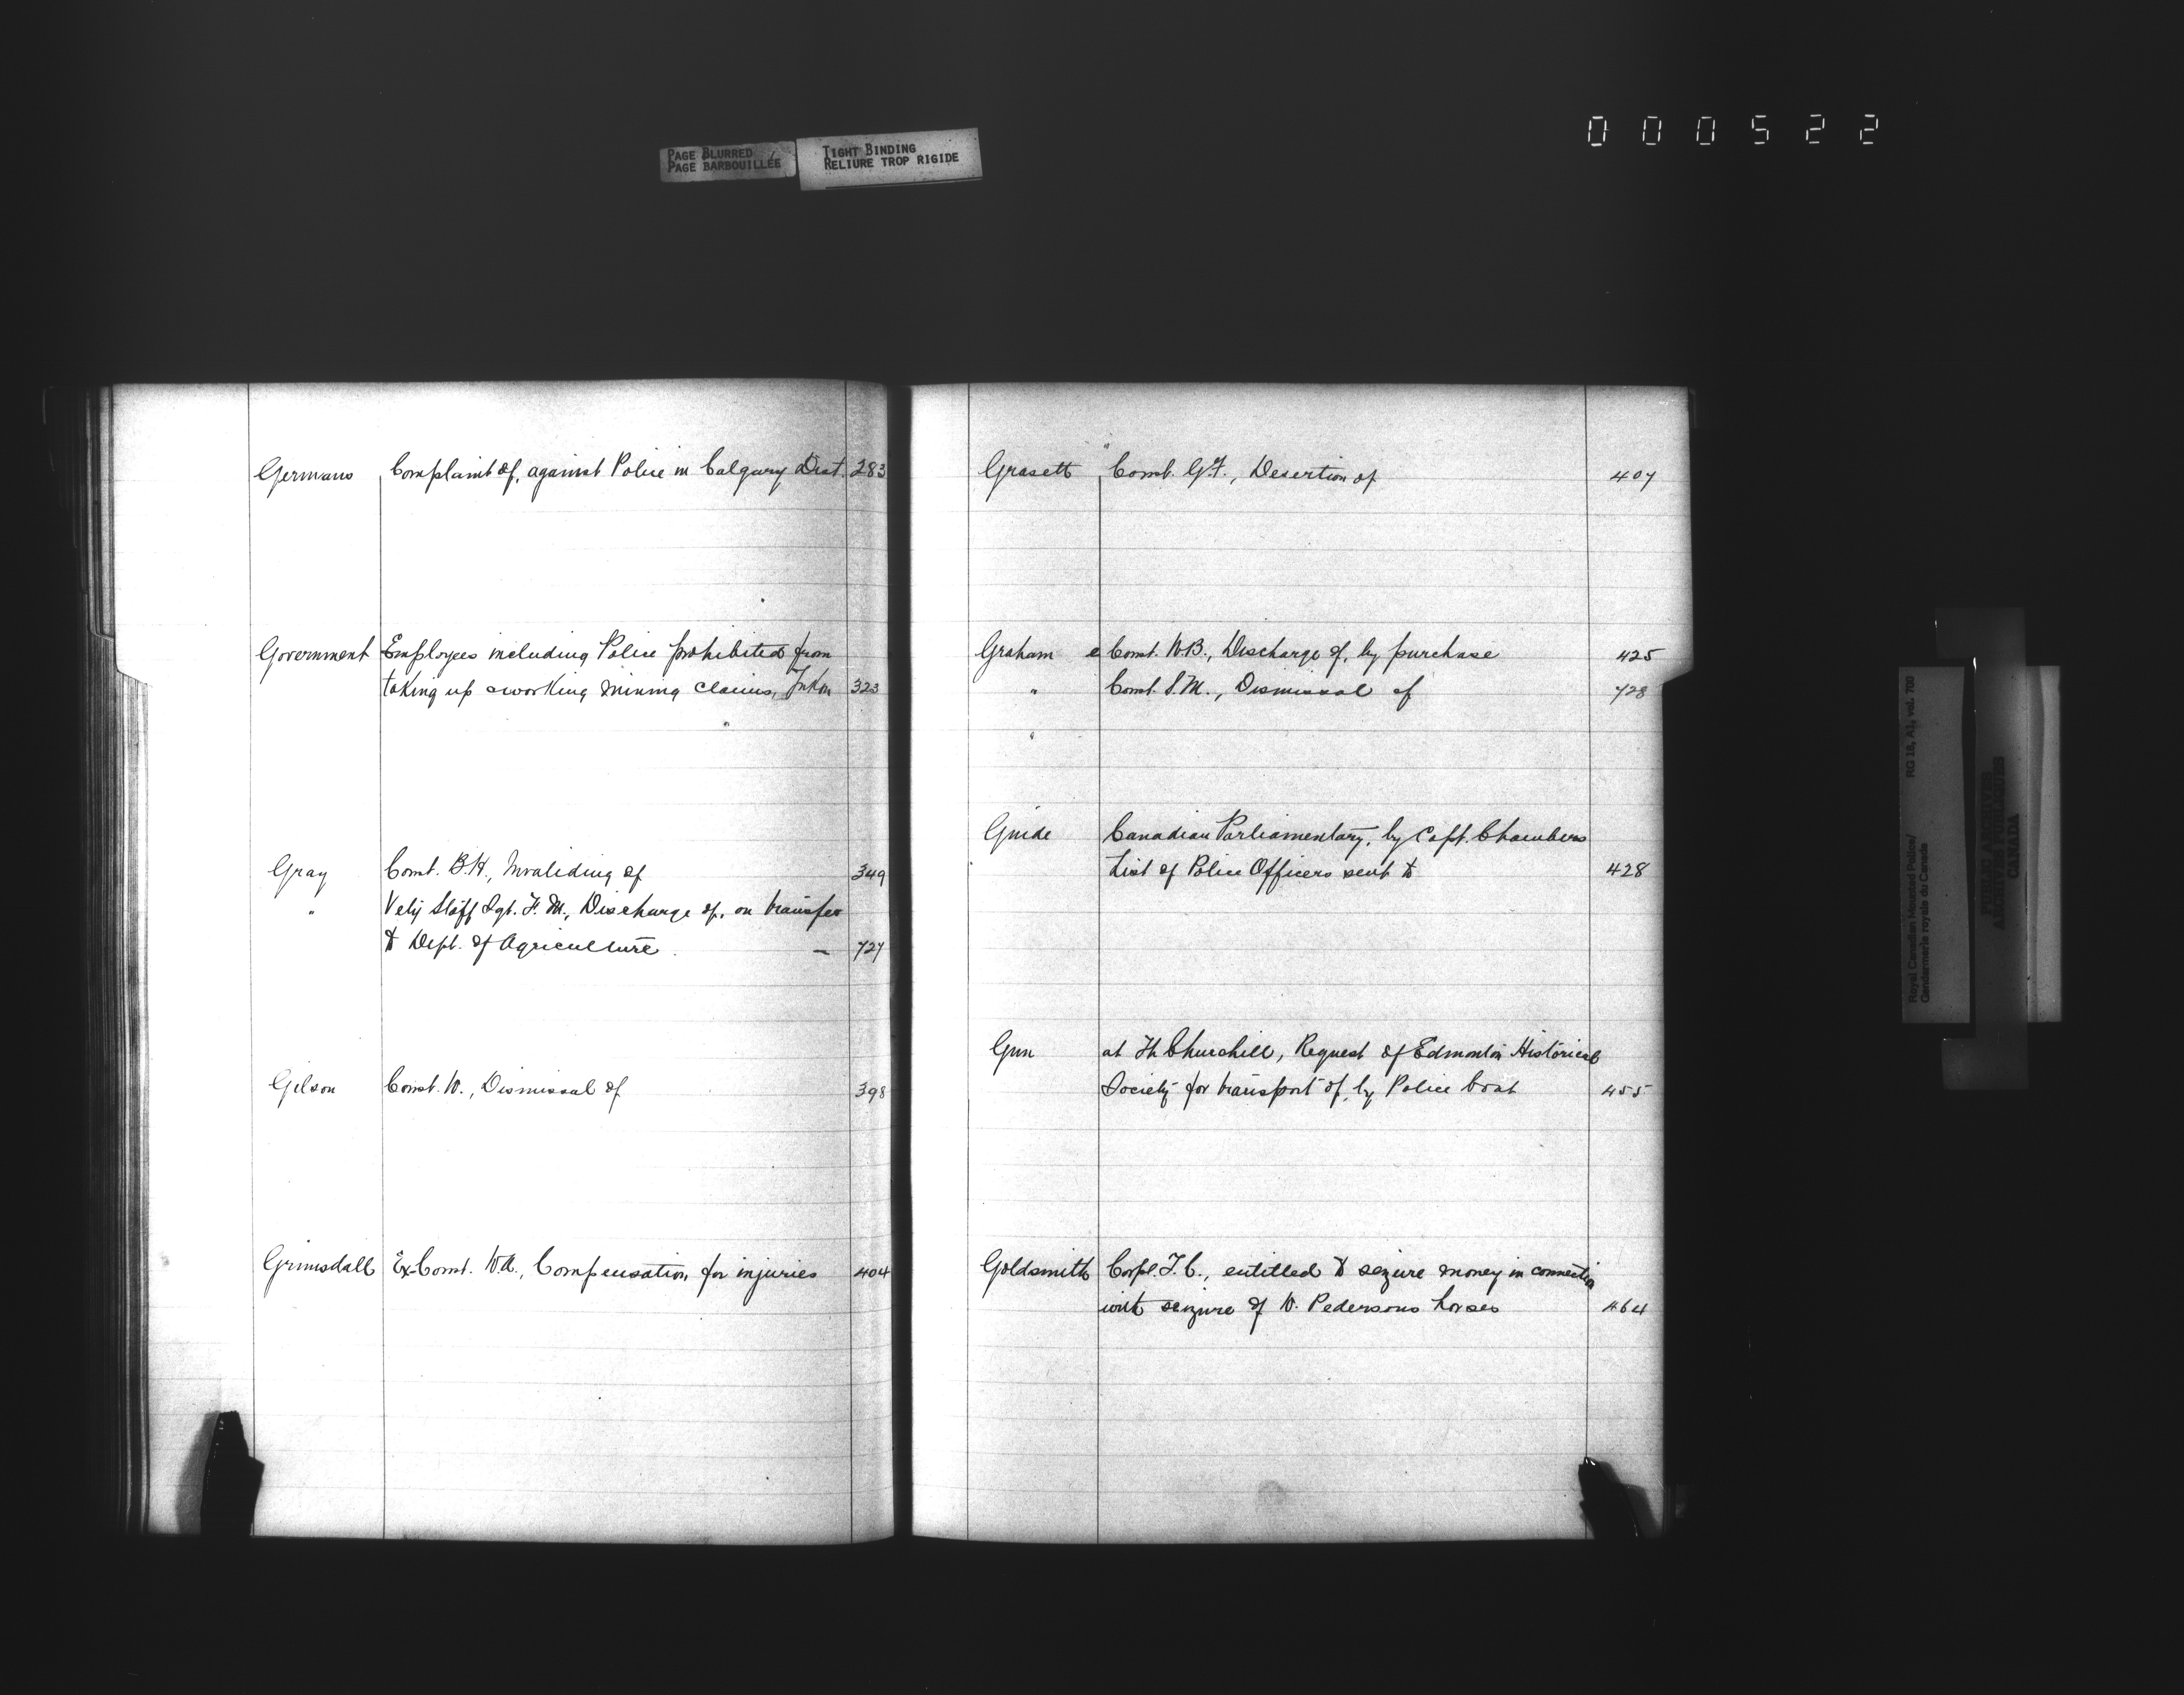 PAGE BLURRED
PAGE BARBOUILLÉE
TIGHT BINDING
RELIURE TROP RIGIDE
000522
Germans Complaint of, against Police in Calgary Dist. 283
Government Employees including Police prohibited from
taking up & working mining claims, Yukon 323
Gray Const. B.H., Invaliding of 349
" Vety Staff Sgt. F. M., Discharge of, on transfer
to Dept. of Agriculture. — 727
Gilson Const. W., Dismissal of 398
Grimsdall Ex-Const. W.A., Compensation for injuries 404
Grasett Const. G.F., Desertion of 407
Graham Const. W.B., Discharge of, by purchase 425
" Const. S.M., Dismissal of 728
"
Guide Canadian Parliamentary, by Capt. Chambers
List of Police Officers sent to 428
Gun at Ft. Churchill, Request of Edmonton Historical
Society for transport of, by Police boat 455
Goldsmith Corpl. T.C., entitled to seizure money in connection
with seizure of W. Pedersons horses 464
Royal Canadian Mounted Police/ RG 18, A1, vol. 700
Gendarmerie royale du Canada
PUBLIC ARCHIVES
ARCHIVES PUBLIQUES
CANADA